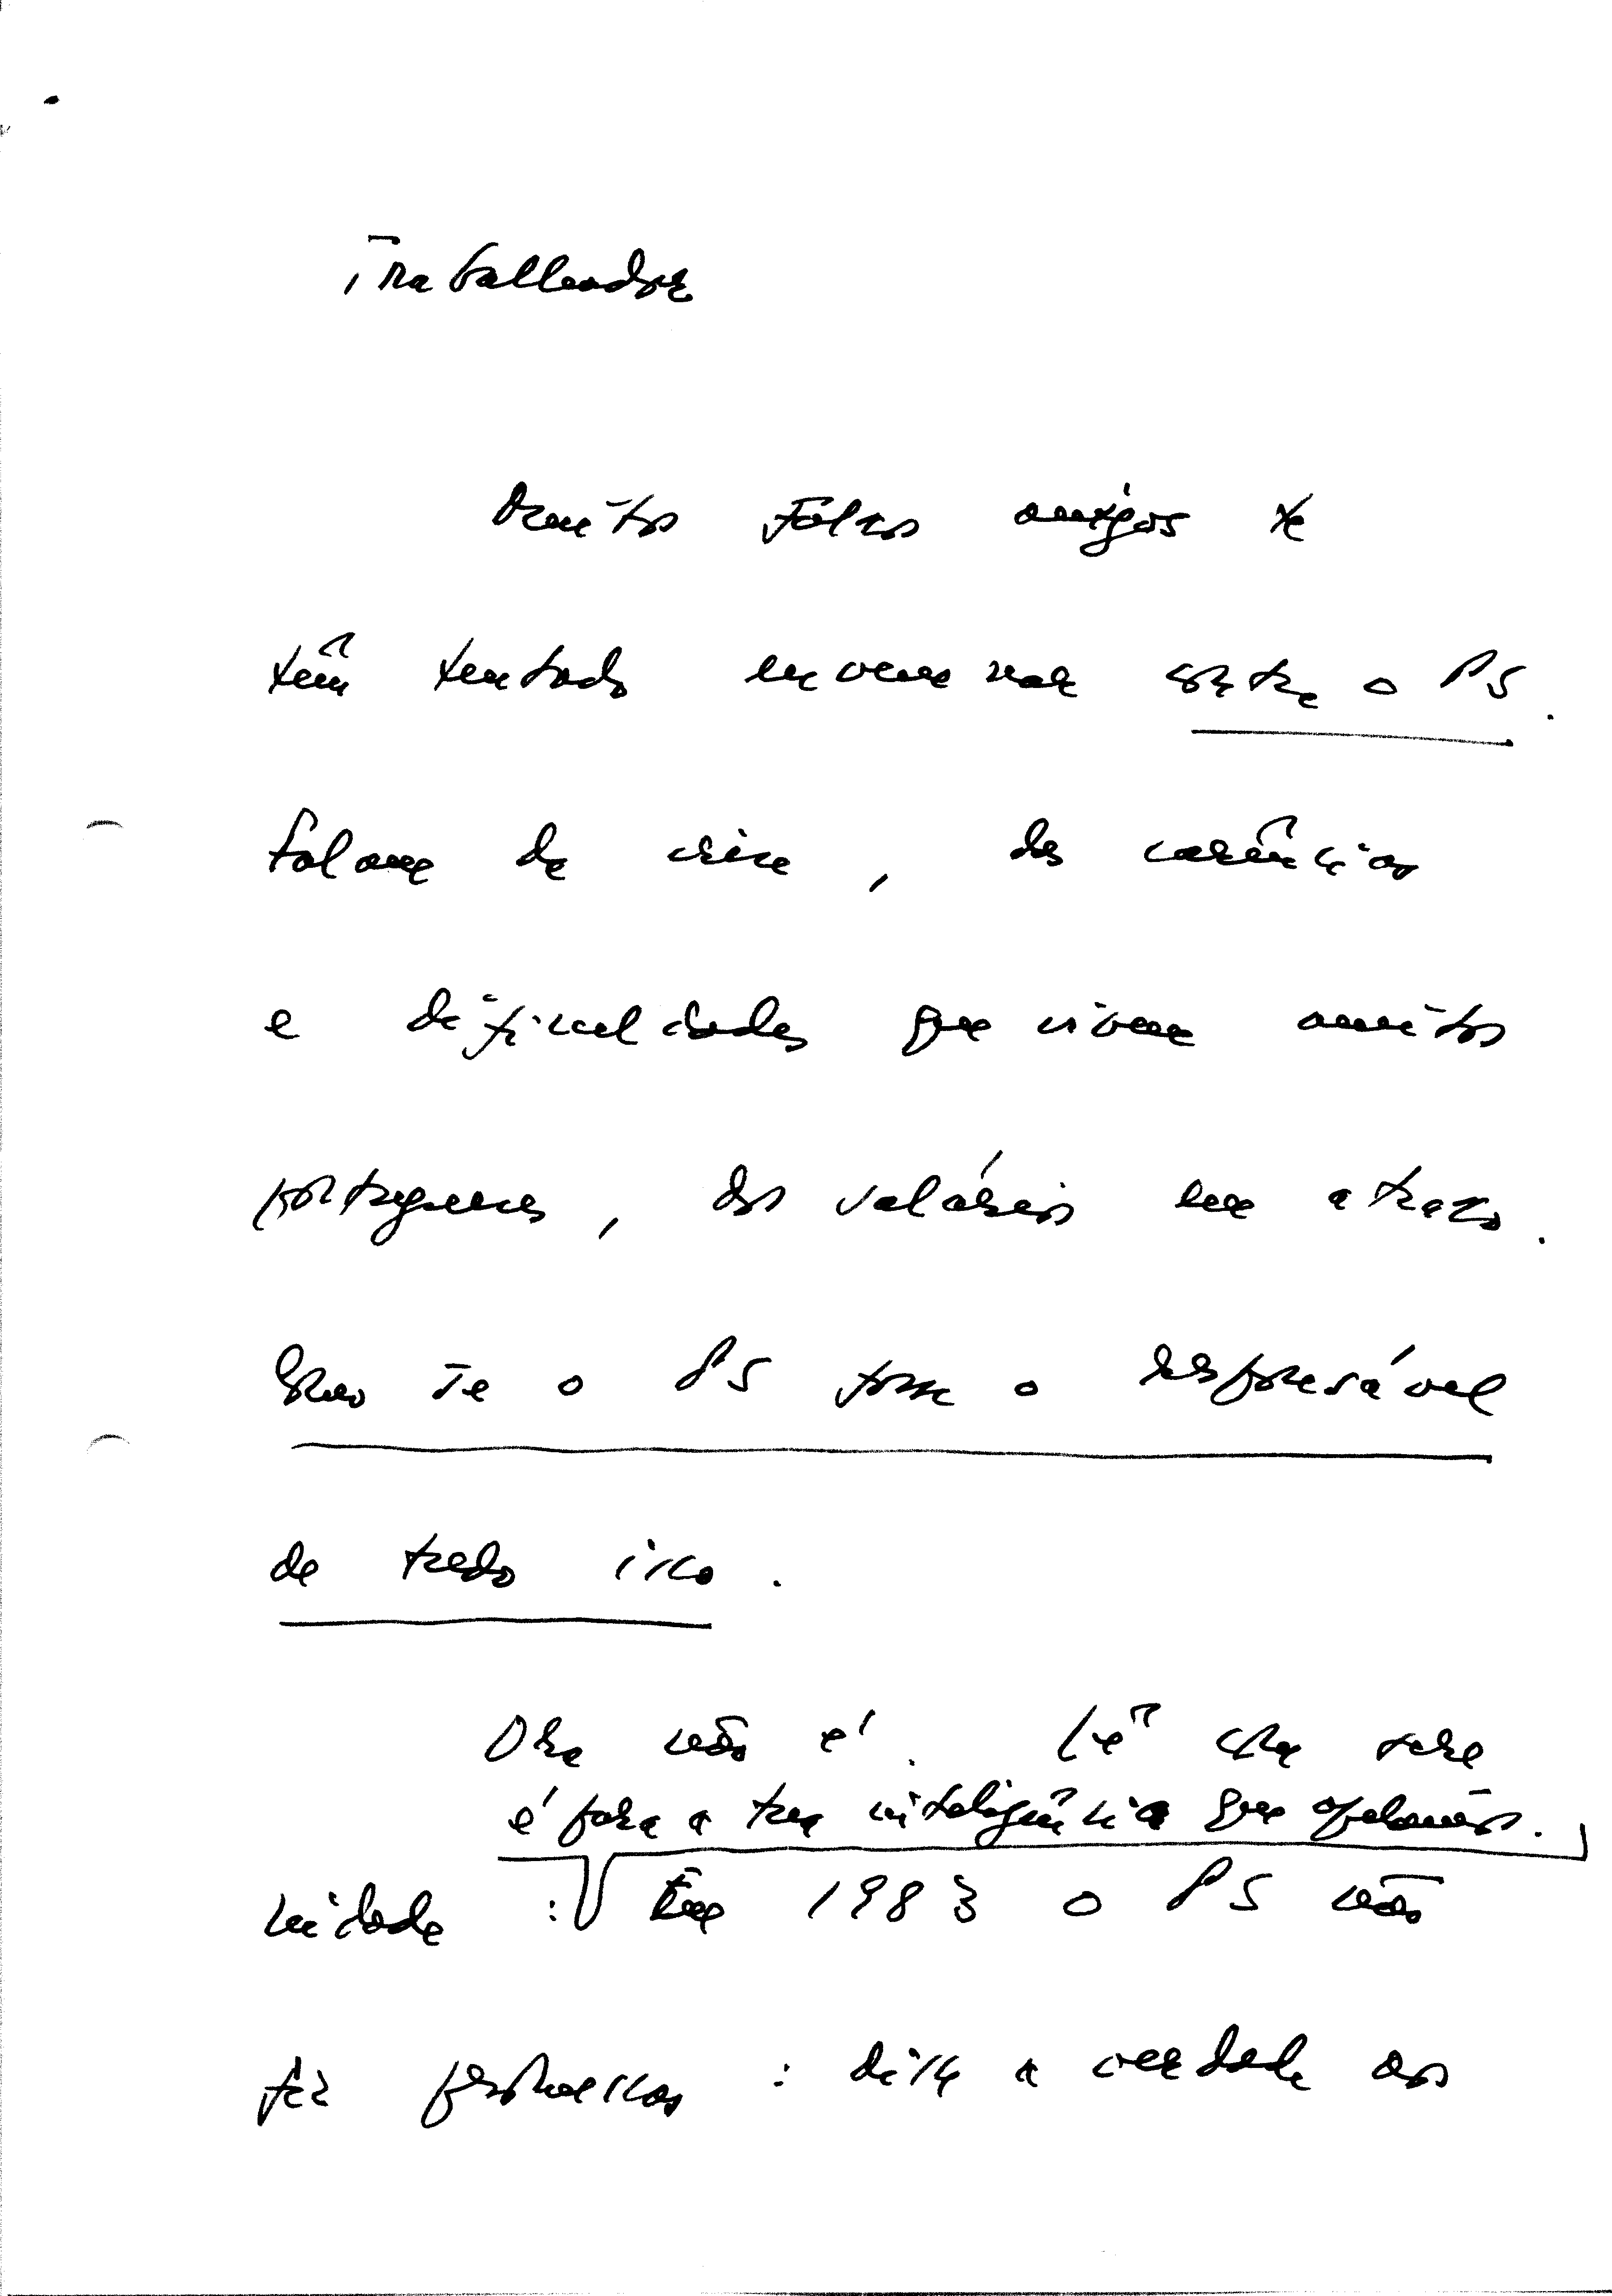 Trabalhador
Muitos falsos amigos te
têm tentado envenenar contra o PS.
Falam da crise, das carências
e dificuldades que vivem muitos
portugueses, dos salários em atraso.
Como se o PS fosse o responsável
de tudo isso.
Ora não é. Lê com sere
é para a tua inteligência que apelamos.
nidade : Em 1983 o PS não
fez promessas : disse a verdade aos